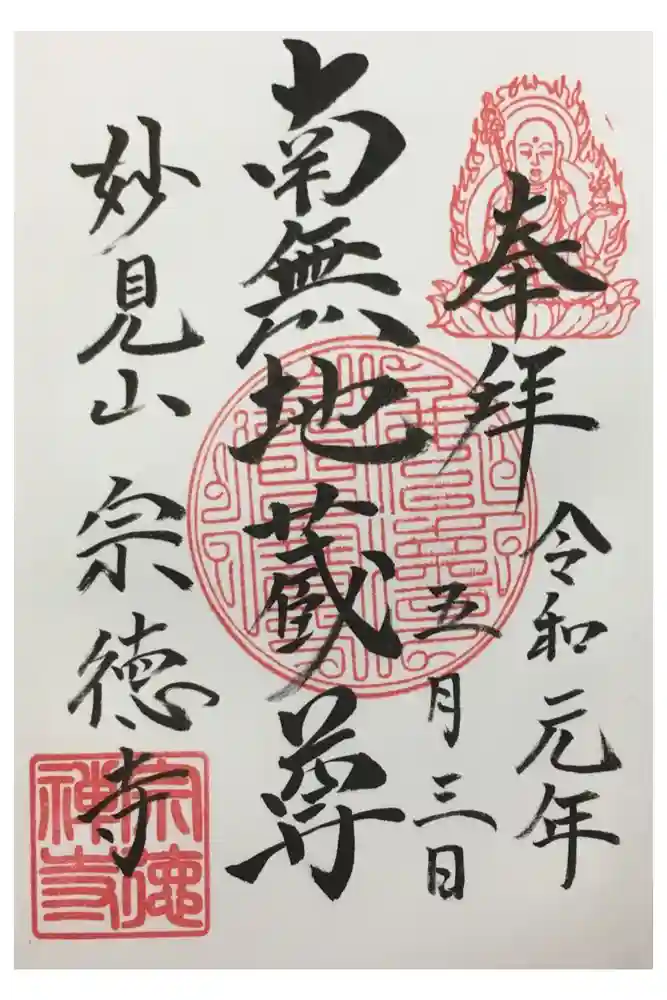 奉拝
令和元年
五月三日
南無地蔵尊
妙見山 宗徳寺
宗徳
禅寺